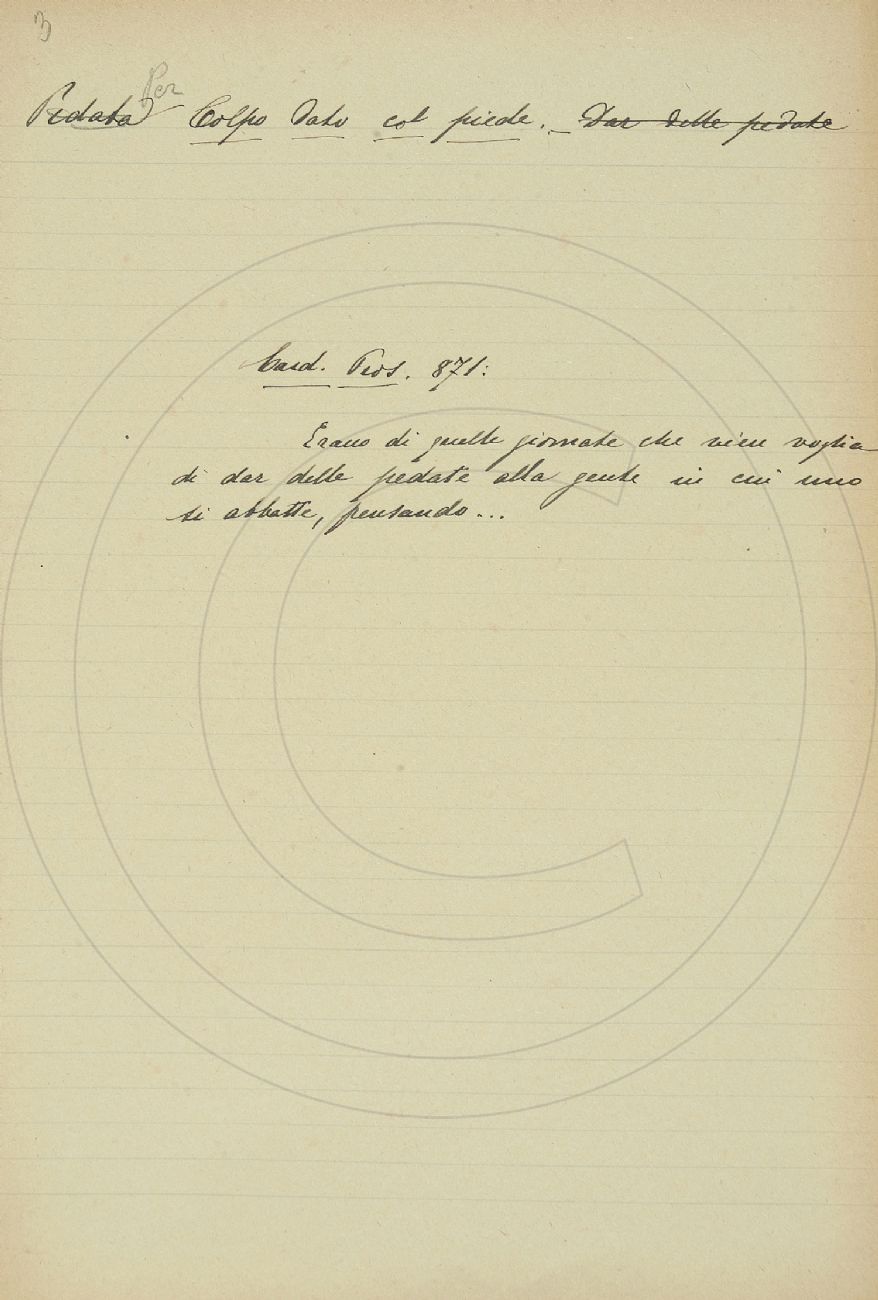 3
Per
Pedata Colpo dato col piede. _ Dar delle pedate
Card. Pros. 871:
Erano di quelle giornate che vien voglia
di dar delle pedate alla gente in cui uno
si abbatte, pensando...